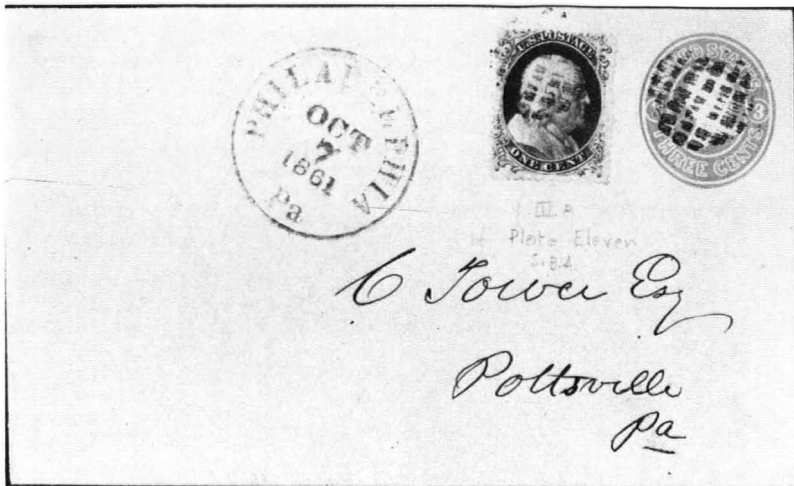 PHILADELPHIA
OCT
7
1861
Pa
U.S. POSTAGE
ONE CENT
UNITED STATES
3
THREE CENTS
Plate Eleven
S.B.A.
C Tower Esq
Pottsville
Pa